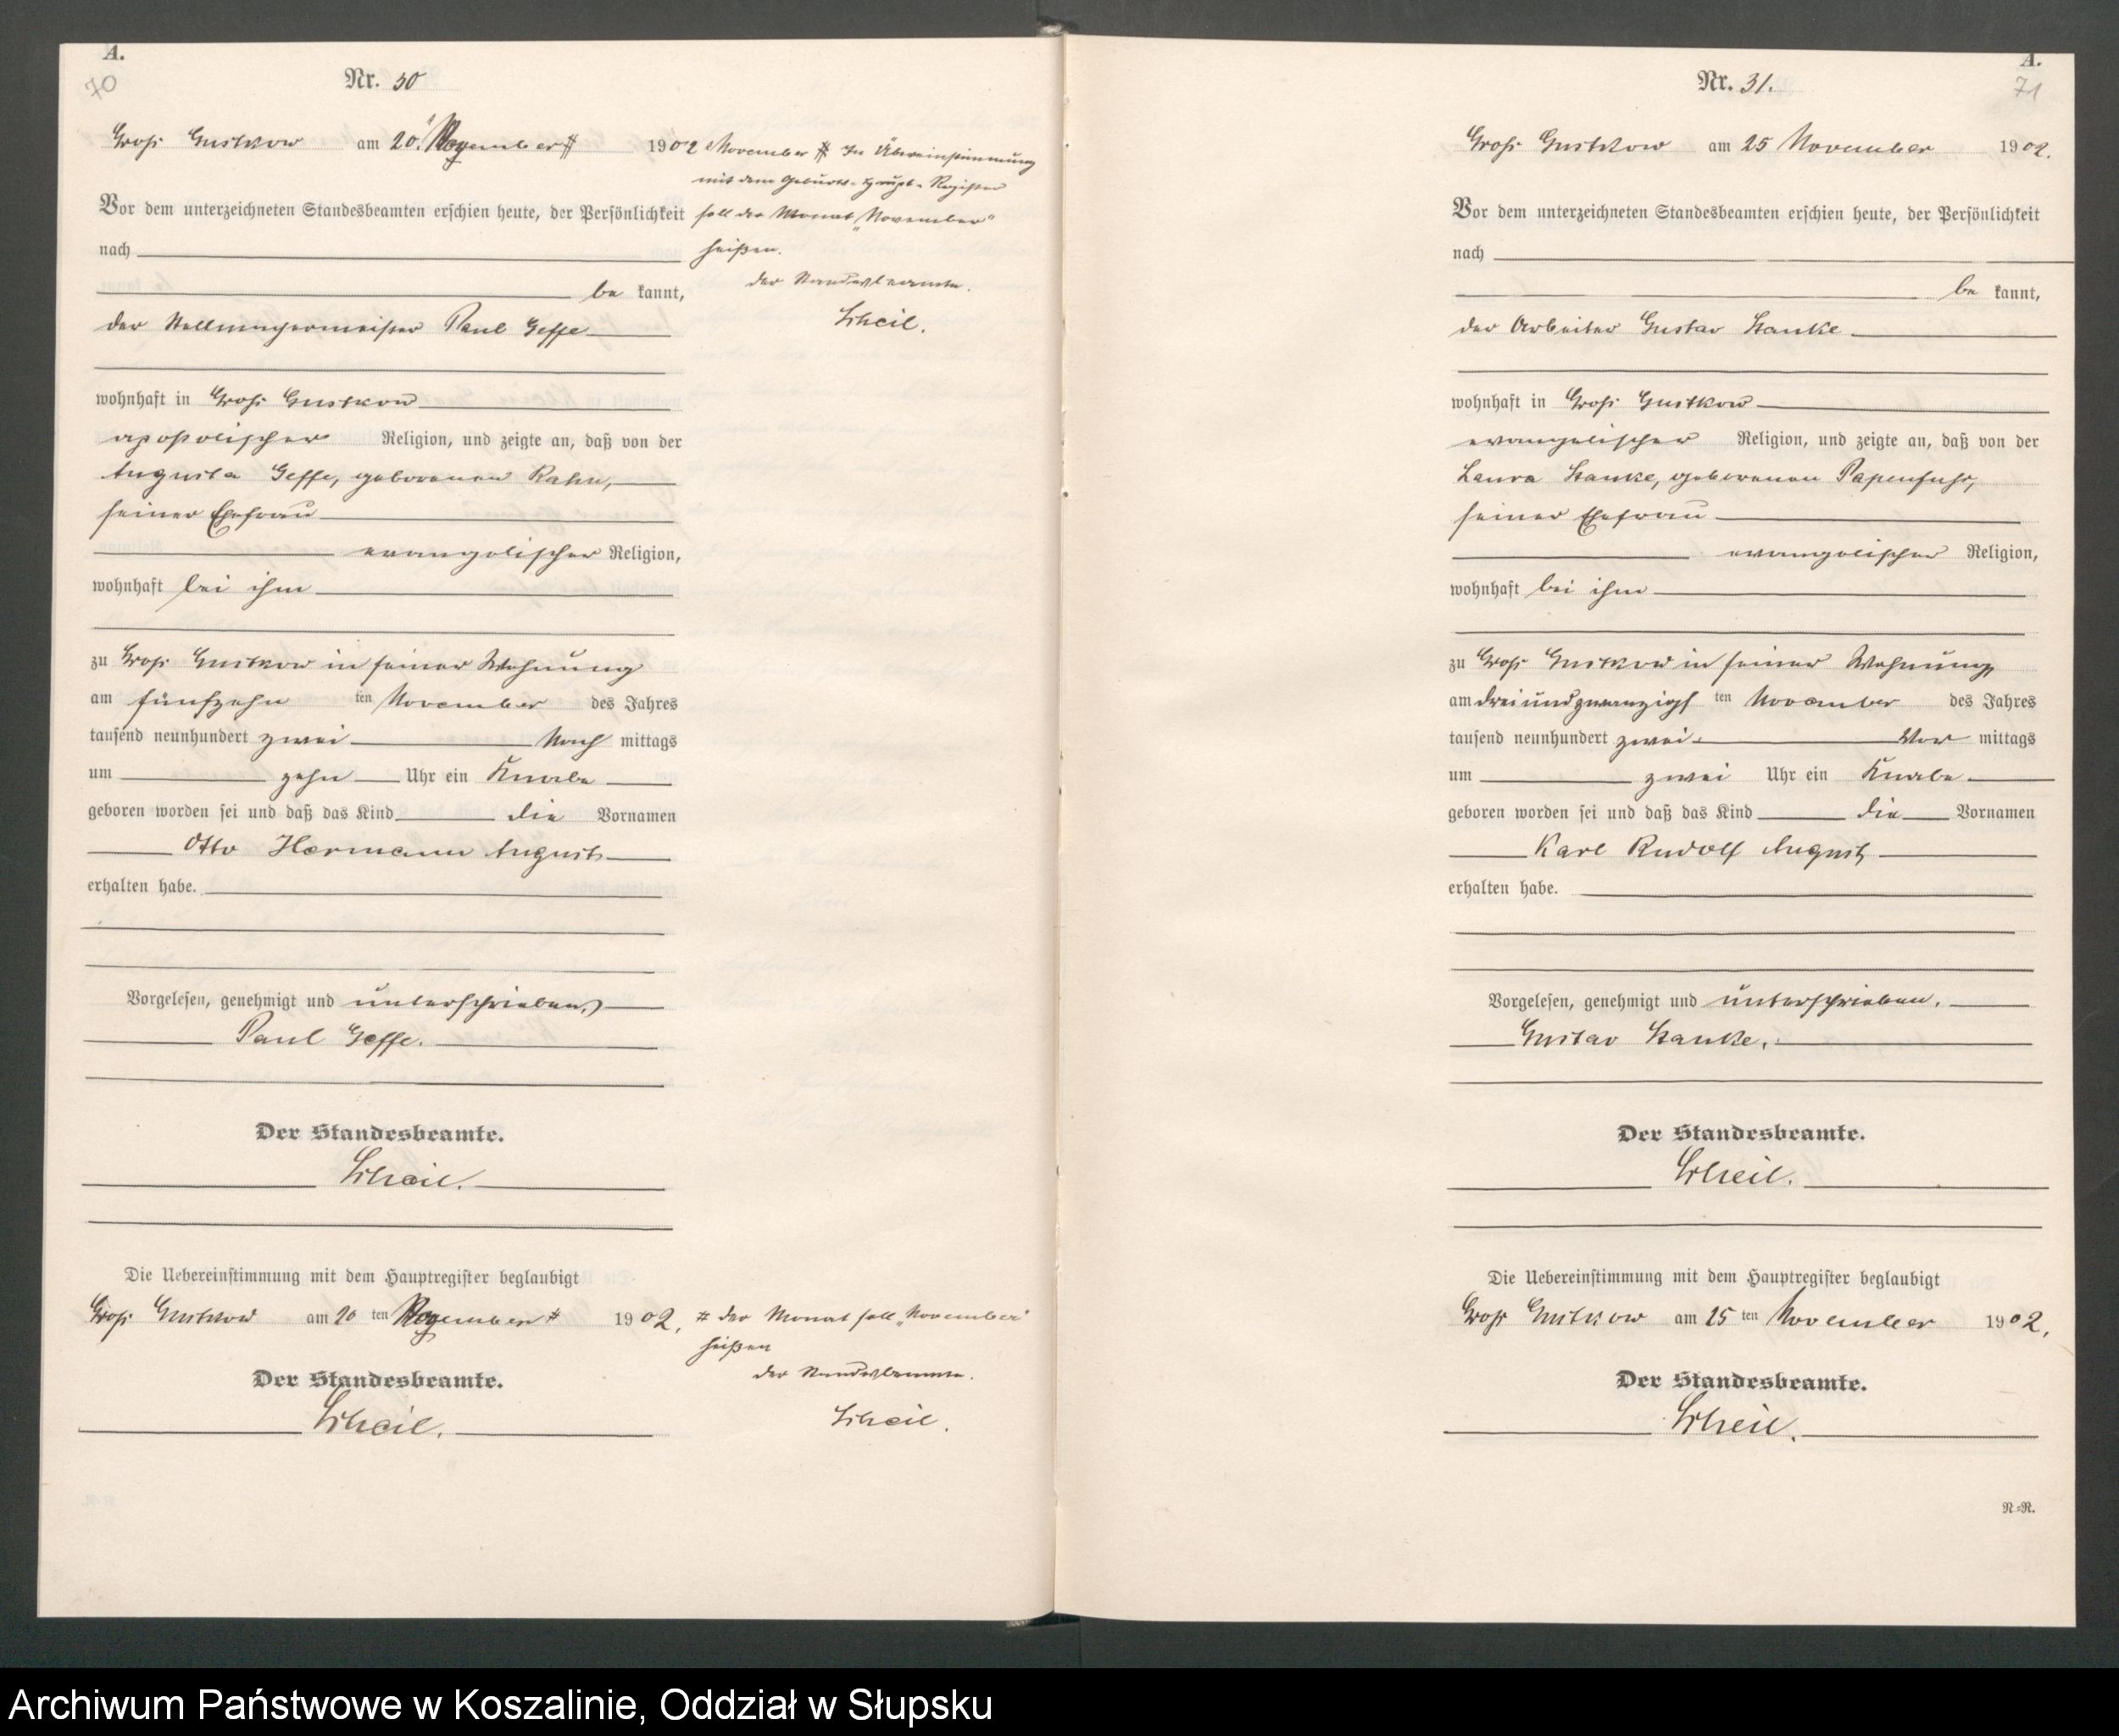 A.
70
Nr. 30
Groß Gustkow am 20. November # 1902
November # In Übereinstimmung
mit dem Geburts-Haupt-Register
soll der Monat "November"
heißen.
der Standesbeamte.
Scheil.
Vor dem unterzeichneten Standesbeamten erschien heute, der Persönlichkeit
nach
be kannt,
der Stellmachermeister Paul Geffe
wohnhaft in Groß Gustkow
apostolischer Religion, und zeigte an, daß von der
Augusta Geffe, geborenen Rahn,
seiner Ehefrau
evangelischer Religion,
wohnhaft bei ihm
zu Groß Gustkow in seiner Wohnung
am fünfzehn ten November des Jahres
tausend neunhundert zwei Nach mittags
um zehn Uhr ein Knabe
geboren worden sei und daß das Kind die Vornamen
Otto Hermann August
erhalten habe.
Vorgelesen, genehmigt und unterschrieben
Paul Geffe.
Der Standesbeamte.
Scheil.
Die Uebereinstimmung mit dem Hauptregister beglaubigt
Groß Gustkow am 20 ten November # 1902.
# der Monat soll "November"
heißen
der Standesbeamte.
Scheil.
Der Standesbeamte.
Scheil.
A.
71
Nr. 31.
Groß Gustkow am 25 November 1902.
Vor dem unterzeichneten Standesbeamten erschien heute, der Persönlichkeit
nach
be kannt,
der Arbeiter Gustav Stanke
wohnhaft in Groß Gustkow
evangelischer Religion, und zeigte an, daß von der
Laura Stanke, geborenen Papenfuhs,
seiner Ehefrau
evangelischer Religion,
wohnhaft bei ihm
zu Groß Gustkow in seiner Wohnung
am dreiundzwanzigs ten November des Jahres
tausend neunhundert zwei Vor mittags
um zwei Uhr ein Knabe
geboren worden sei und daß das Kind die Vornamen
Karl Rudolf August
erhalten habe.
Vorgelesen, genehmigt und unterschrieben.
Gustav Stanke.
Der Standesbeamte.
Scheil.
Die Uebereinstimmung mit dem Hauptregister beglaubigt
Groß Gustkow am 25 ten November 1902.
Der Standesbeamte.
Scheil.
N=R.
Archiwum Państwowe w Koszalinie, Oddział w Słupsku